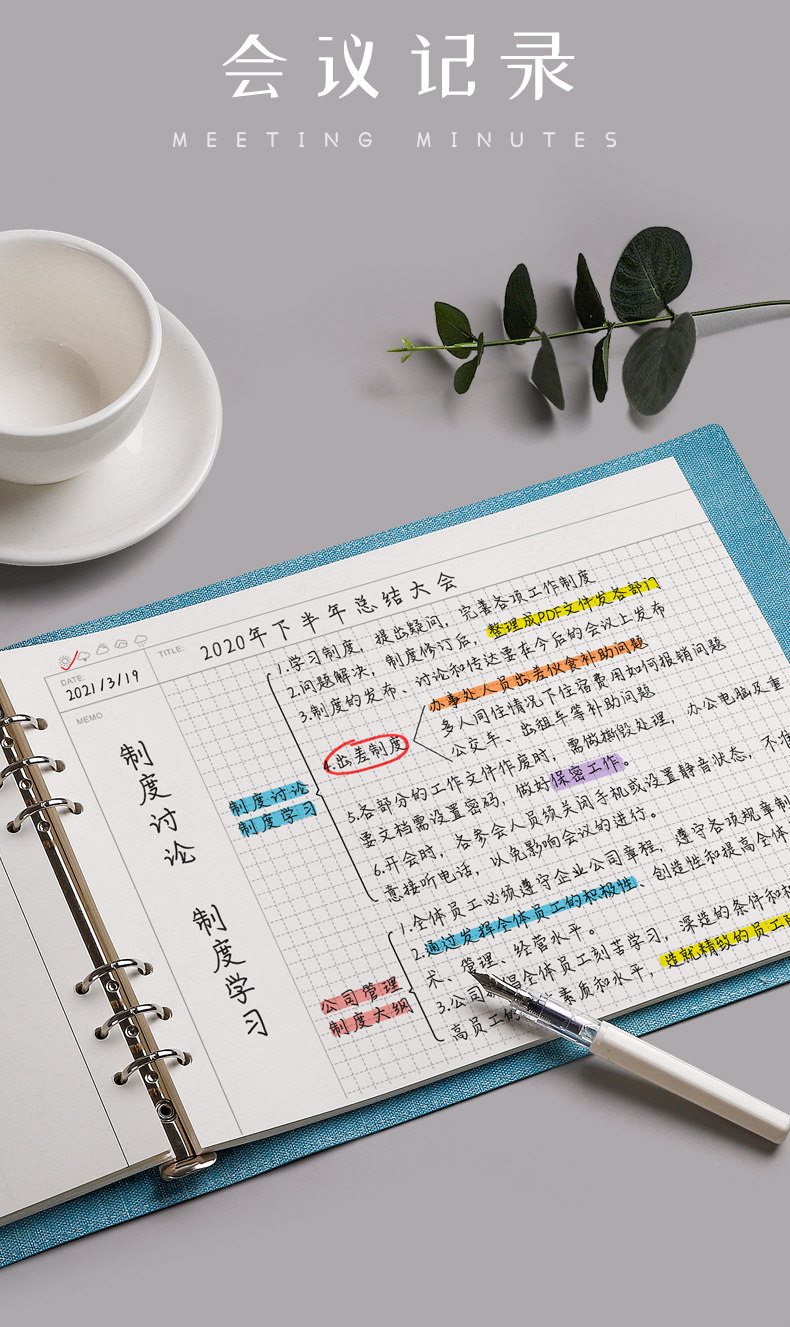 会议记录
MEETING MINUTES
DATE:
2021/3/19
TITLE:
2020年下半年总结大会
MEMO
制度讨论
制度学习
制度讨论
制度学习
1.学习制度,提出疑问,完善各项工作制度
2.问题解决,制度修订后,整理成PDF文件发各部门
3.制度的发布、讨论和传达要在今后的会议上发布
4.出差制度
办事处人员出差伙食补助问题
多人同住情况下住宿费用如何报销问题
公交车、出租车等补助问题
5.各部分的工作文件作废时,需做撕毁处理,办公电脑及重
要文档需设置密码,做好保密工作。
6.开会时,各参会人员须关闭手机或设置静音状态,不准
意接听电话,以免影响会议的进行。
公司管理
制度大纲
1.全体员工必须遵守企业公司章程,遵守各项规章制
2.通过发挥全体员工的积极性、创造性和提高全体
术、管理、经营水平。
3.公司 倡全体员工刻苦学习,深造的条件和
高员工的 素质和水平,造就精致的员工